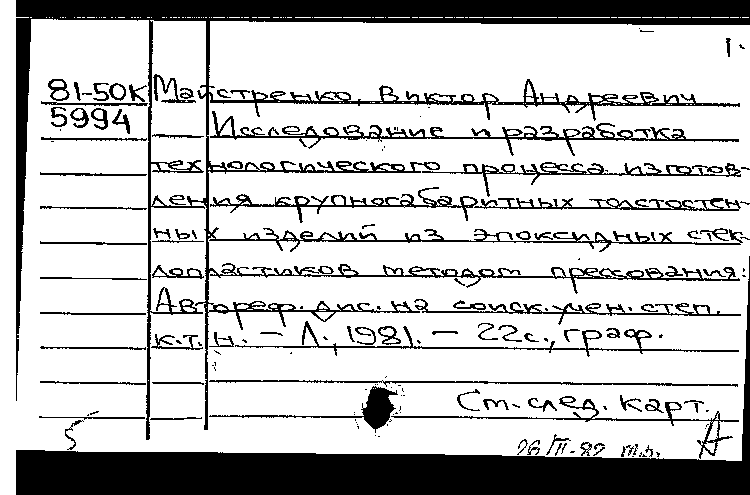 1.
81-50К Майстренко, Виктор Андреевич
5994 Исследование и разработка
технологического процесса изготов-
ления крупногабаритных толстостен-
ных изделий из эпоксидных стек-
лопластиков методом прессования:
Автореф. дис. на соиск. учен. степ.
к.т.н. – Л., 1981. – 22с., граф.
См. след. карт.
5 26/III-82 А